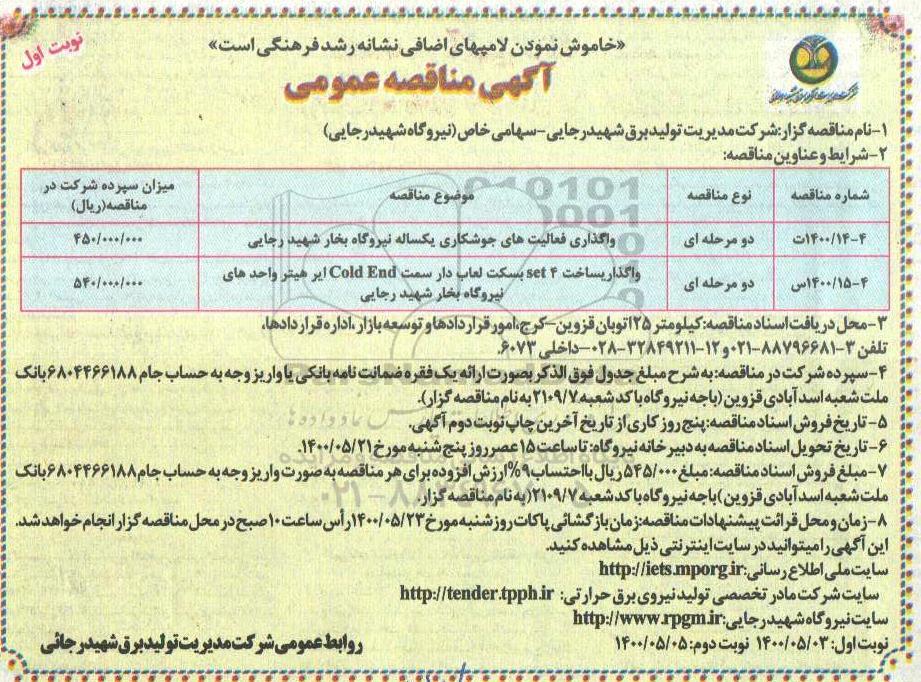 نوبت اول
«خاموش نمودن لامپهای اضافی نشانه رشد فرهنگی است»
آگهی مناقصه عمومی
۱-نام مناقصه گزار: شرکت مدیریت تولید برق شهید رجایی-سهامی خاص (نیروگاه شهید رجایی)
۲-شرایط و عناوین مناقصه:
شماره مناقصه نوع مناقصه موضوع مناقصه میزان سپرده شرکت در مناقصه(ریال)
۱۴۰۰/۱۴-۴ت دو مرحله ای واگذاری فعالیت های جوشکاری یکساله نیروگاه بخار شهید رجایی ۴۵۰/۰۰۰/۰۰۰
۱۴۰۰/۱۵-۴س دو مرحله ای واگذاری ساخت ۴ set بسکت لعاب دار سمت Cold End ایر هیتر واحد های نیروگاه بخار شهید رجایی ۵۴۰/۰۰۰/۰۰۰
۳-محل دریافت اسناد مناقصه: کیلومتر ۲۵ اتوبان قزوین-کرج، امور قراردادها و توسعه بازار، اداره قراردادها،
تلفن ۳-۸۸۷۹۶۶۸۱-۰۲۱ و ۱۲-۳۲۸۴۹۲۱۱-۰۲۸-داخلی ۶۰۷۳.
۴-سپرده شرکت در مناقصه: به شرح مبلغ جدول فوق الذکر بصورت ارائه یک فقره ضمانت نامه بانکی یا واریز وجه به حساب جام ۶۸۰۴۴۶۶۱۸۸ بانک
ملت شعبه اسدآبادی قزوین (باجه نیروگاه با کد شعبه ۲۱۰۹/۷ به نام مناقصه گزار).
۵- تاریخ فروش اسناد مناقصه: پنج روز کاری از تاریخ آخرین چاپ نوبت دوم آگهی.
۶-تاریخ تحویل اسناد مناقصه به دبیرخانه نیروگاه: تا ساعت ۱۵ عصر روز پنج شنبه مورخ ۱۴۰۰/۰۵/۲۱.
۷-مبلغ فروش اسناد مناقصه: مبلغ ۵۴۵/۰۰۰ ریال با احتساب ۹% ارزش افزوده برای هر مناقصه به صورت واریز وجه به حساب جام ۶۸۰۴۴۶۶۱۸۸ بانک
ملت شعبه اسدآبادی قزوین (باجه نیروگاه با کد شعبه ۲۱۰۹/۷) به نام مناقصه گزار.
۸-زمان و محل قرائت پیشنهادات مناقصه: زمان بازگشائی پاکات روز شنبه مورخ ۱۴۰۰/۰۵/۲۳ رأس ساعت ۱۰ صبح در محل مناقصه گزار انجام خواهد شد.
این آگهی را میتوانید در سایت اینترنتی ذیل مشاهده کنید.
سایت ملی اطلاع رسانی: http://iets.mporg.ir
سایت شرکت مادر تخصصی تولید نیروی برق حرارتی: http://tender.tpph.ir
سایت نیروگاه شهید رجایی: http://www.rpgm.ir
نوبت اول: ۱۴۰۰/۰۵/۰۳ نوبت دوم: ۱۴۰۰/۰۵/۰۵
روابط عمومی شرکت مدیریت تولید برق شهید رجائی